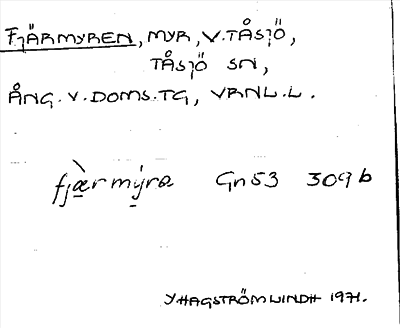 FJÄRMYREN, MYR, V. TÅSJÖ,
TÅSJÖ SN,
ÅNG. V. DOMS. TG, VRNL. L.
fjæ̀rmýra Gn 53 309 b
Y HAGSTRÖM LINDH 1971.